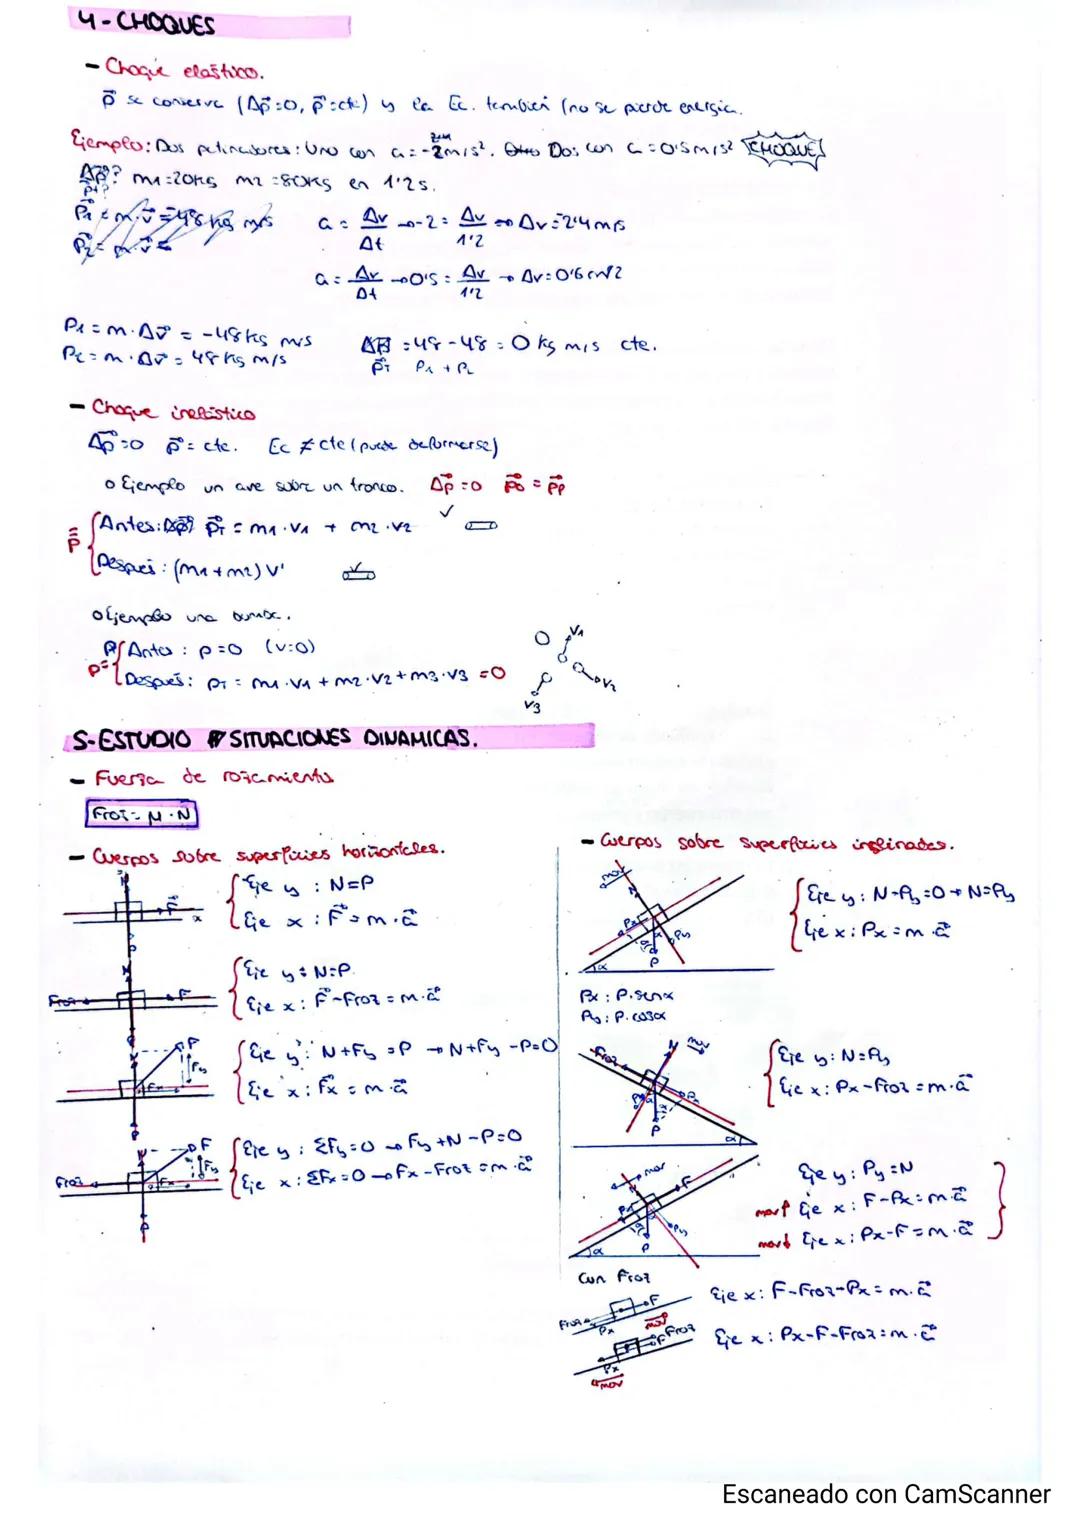 4-CHOQUES
- Choque elástico.
p⃗ se conserva (Δp⃗=0, p⃗=cte) y la Ec. también (no se pierde energía.
Ejemplo: Dos patinadores: Uno con a=-2m/s². Dos con a=0'5m/s² ¡CHOQUE!
Δp⃗? m1=20kg m2=80kg en 1'2s.
P1 = m·v⃗ = -48 kg m/s
P2 = m·v⃗ =
a = Δv/Δt → -2 = Δv/1'2 → Δv=-2'4m/s
a = Δv/Δt → 0'5 = Δv/1'2 → Δv=0'6
P1 = m·Δv⃗ = -48kg m/s
P2 = m·Δv⃗ = 48 kg m/s
= 48-48 = 0 kg m/s cte.
p⃗T P1 + P2
- Choque inelástico
Δp⃗=0 p⃗= cte. Ec ≠ cte (puede deformarse)
o Ejemplo un ave sobre un tronco. Δp⃗=0 p⃗o = p⃗p
p⃗ Antes: p⃗T = m1·v1 + m2·v2
Después: (m1+m2) v'
o Ejemplo una bomba.
p= Antes: p=0 (v=0)
Después: pT = m1·v1 + m2·v2 + m3·v3 =0
v1
v2
v3
5-ESTUDIO SITUACIONES DINAMICAS.
- Fuerza de rozamiento
Froz= μ·N
- Cuerpos sobre superficies horizontales.
N F⃗ x P
Eje y : N=P
Eje x : F⃗ = m·a⃗
N Froz F P
Eje y : N=P
Eje x : F⃗-Froz = m·a⃗
N F Fy Fx P
Eje y : N+Fy =P → N+Fy -P=0
Eje x : F⃗x = m·a⃗
N F Froz Fy Fx P
Eje y : ΣFy=0 → Fy+N-P=0
Eje x : ΣFx=0 → Fx-Froz = m·a⃗
- Cuerpos sobre superficies inclinadas.
mov N Px Py P α
Eje y: N-Py=0 → N=Py
Eje x: Px = m·a⃗
Px: P·senα
Py: P·cosα
Froz N mov Py Px P α
Eje y: N=Py
Eje x: Px-Froz = m·a⃗
mov F Px Py P α
Eje y: Py=N
mov↑ Eje x: F-Px = m·a⃗
mov↓ Eje x: Px-F = m·a⃗
Con Froz
Froz Px F mov
Eje x: F-Froz-Px = m·a⃗
F Froz Px mov
Eje x: Px-F-Froz = m·a⃗
Escaneado con CamScanner